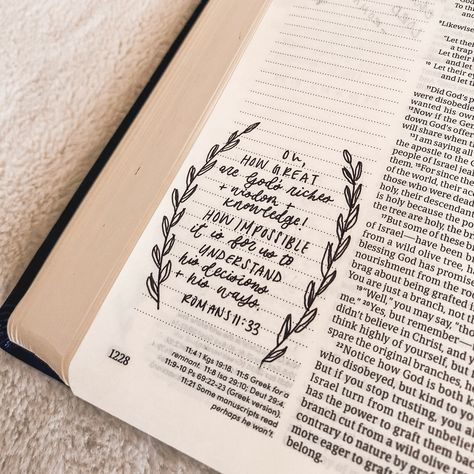 Oh,
HOW GREAT
are God's riches
+ wisdom +
knowledge!
HOW IMPOSSIBLE
it is for us to
UNDERSTAND
his decisions
+ his ways.
ROMANS 11:33
1228
11:4 1 Kgs 19:18. 11:5 Greek for a
remnant. 11:8 Isa 29:10; Deut 29:4.
11:9-10 Ps 69:22-23 (Greek version).
11:21 Some manuscripts read
perhaps he won't.
to th
⁹Likewise
"Let their
a trap
Let their
and let
¹⁰Let their
and let
¹¹Did God's p
were disobedie
wanted his own
¹²Now if the Gen
down God's offer
will share when th
¹³I am saying all
the apostle to the
people of Israel jeal
them. ¹⁵For since thei
the world, their acce
those who were dead
their descendants
is holy because the po
the tree are holy, the bra
¹⁷But some of these
of Israel—have been b
from a wild olive tree.
blessing God has promise
nourishment from the roo
brag about being grafted i
You are just a branch, not th
¹⁹"Well," you may say, "th
me." ²⁰Yes, but remember—
didn't believe in Christ, and
think highly of yourself, but
spare the original branches,
²²Notice how God is both k
who disobeyed, but kind to
But if you stop trusting, yo
Israel turn from their unbelie
has the power to graft them b
branch cut from a wild olive
contrary to nature by graft
more eager to graft
belong.